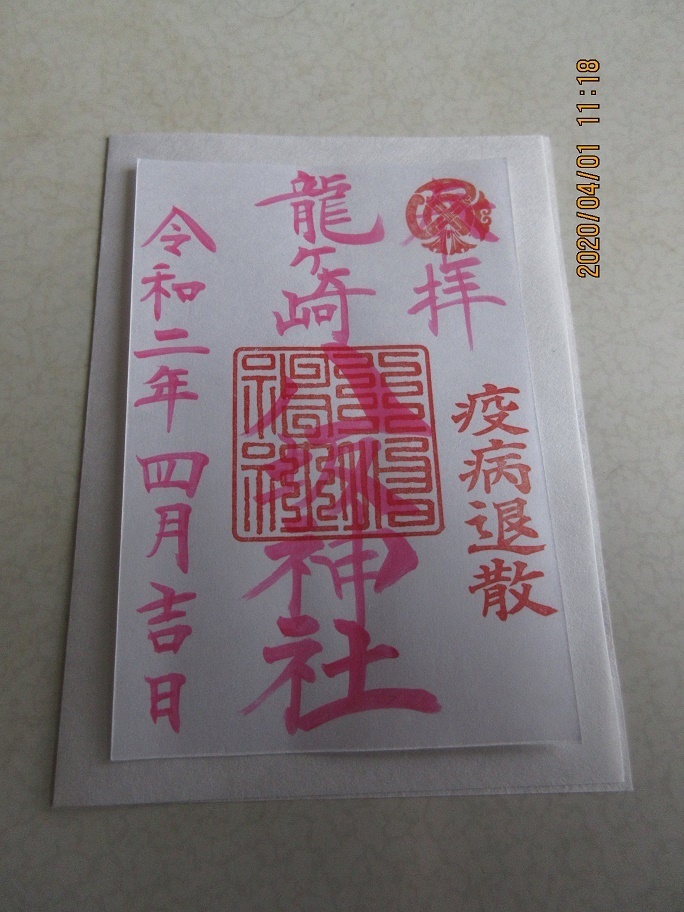 2020/04/01 11:18
奉拝
疫病退散
龍ヶ崎八坂神社
令和二年四月吉日